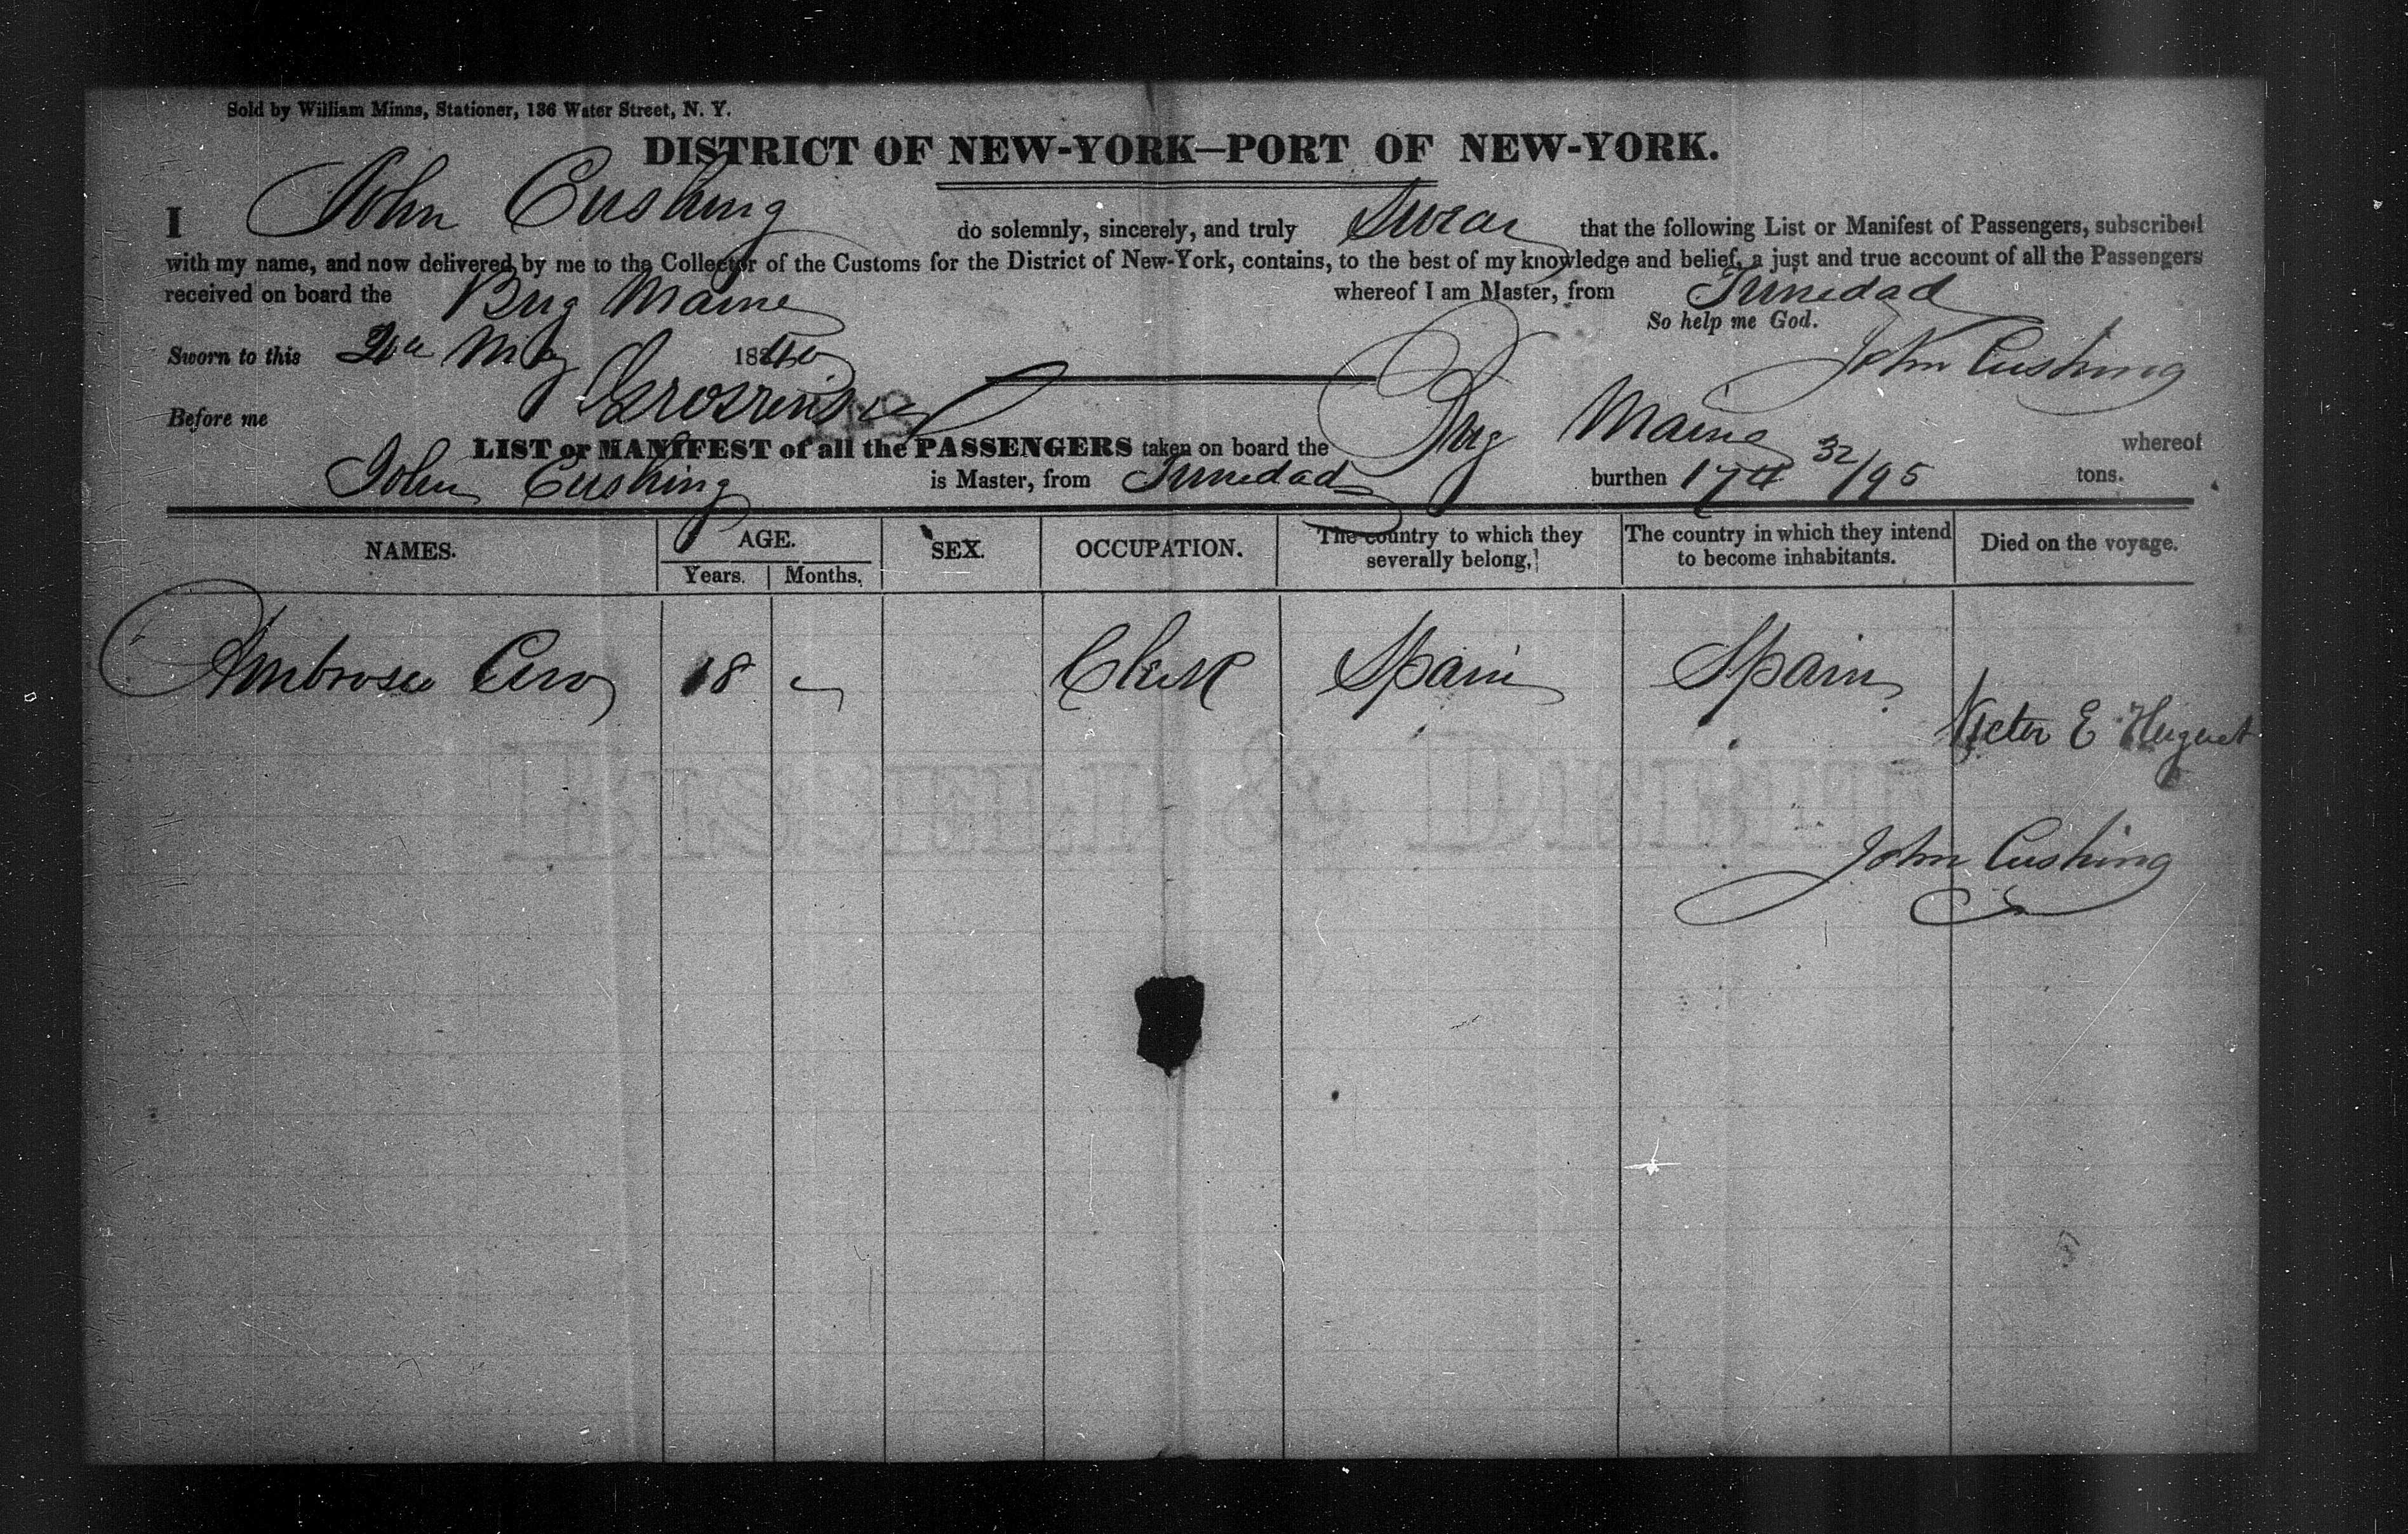 Sold by William Minns, Stationer, 136 Water Street, N. Y.
DISTRICT OF NEW-YORK—PORT OF NEW-YORK.
I John Cushing do solemnly, sincerely, and truly Swear that the following List or Manifest of Passengers, subscribed
with my name, and now delivered by me to the Collector of the Customs for the District of New-York, contains, to the best of my knowledge and belief, a just and true account of all the Passengers
received on board the Brig Maine whereof I am Master, from Trinedad
So help me God.
Sworn to this May 1840 John Cushing
Before me
LIST or MANIFEST of all the PASSENGERS taken on board the Brig Maine whereof
John Cushing is Master, from Trinedad burthen 174 32/95 tons.
NAMES. AGE. Years. Months. SEX. OCCUPATION. The country to which they severally belong. The country in which they intend to become inhabitants. Died on the voyage.
Ambrose 18 Clerk Spain Spain
Victor E Huguet
John Cushing